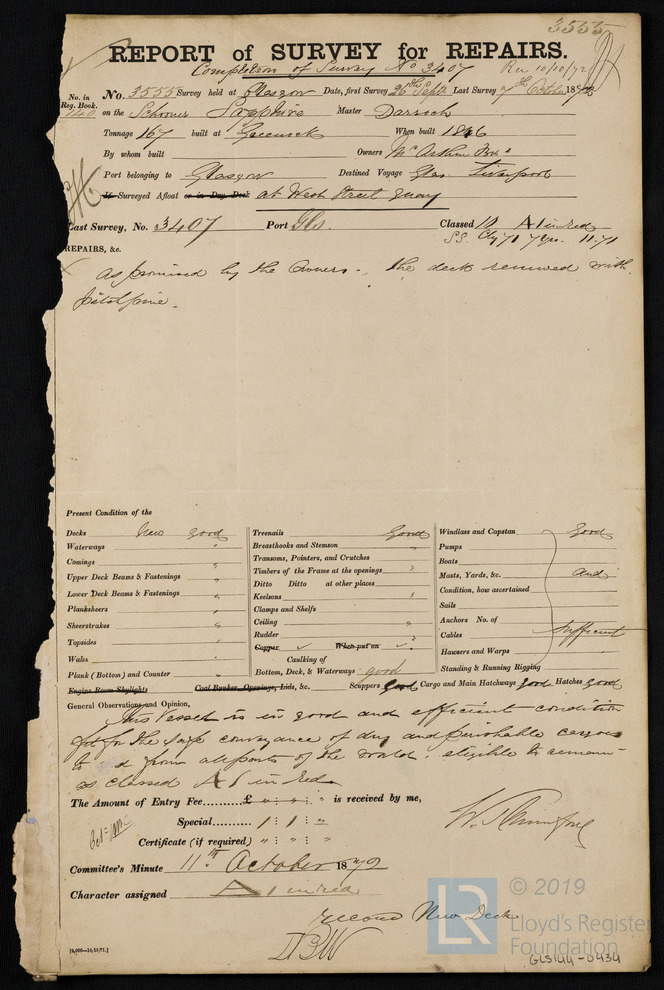 3555
REPORT of SURVEY for REPAIRS.
Completion of Survey No 3407 Rec 10/10/72
No. in Reg. Book.
No. 3555 Survey held at Glasgow Date, first Survey 26th Septr Last Survey 7th October 1872
140 on the Schooner Sapphire Master Darroch
Tonnage 167 built at Greenock When built 18
By whom built Owners McArthur Bros
Port belonging to Glasgow Destined Voyage Glas. Liverpool
If Surveyed Afloat or in Dry Dock at West Street Quay
Last Survey, No. 3407 Port Gls. Classed 10 A1 in red
S.S. Cly 71 7 yrs. 11.71
REPAIRS, &c.
As promised by the Owners - the deck renewed with
pitchpine.
Present Condition of the
Decks New good
Waterways "
Comings "
Upper Deck Beams & Fastenings "
Lower Deck Beams & Fastenings "
Planksheers "
Sheerstrakes "
Topsides "
Wales "
Plank (Bottom) and Counter "
Engine Room Skylights
Treenails Good
Breasthooks and Stemson "
Transoms, Pointers, and Crutches
Timbers of the Frame at the openings "
Ditto Ditto at other places
Keelsons "
Clamps and Shelfs
Ceiling "
Rudder "
Copper When put on
Caulking of
Bottom, Deck, & Waterways good
Coal Bunker Openings, Lids, &c.
Windlass and Capstan Good
Pumps
Boats
Masts, Yards, &c. And
Condition, how ascertained
Sails
Anchors No. of
Cables Sufficient
Hawsers and Warps
Standing & Running Rigging
Scuppers good Cargo and Main Hatchways good Hatches good
General Observations and Opinion,
This Vessel is in good and efficient condition
fit for the safe conveyance of dry and perishable cargoes
to & from all parts of the world. eligible to remain
as classed A1 in Red
The Amount of Entry Fee......... £ " : " : " is received by me,
Special............
Certificate (if required) " : " : "
Committee's Minute 11th October 1872
Character assigned A1 in red
record New Deck
[6,000—14/10/71.]
© 2019
Lloyd's Register
Foundation
GLS144-0434